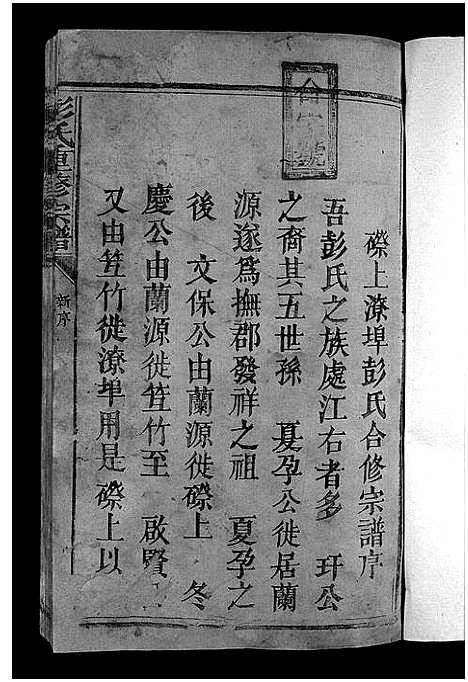 礤上潦埠彭氏合修宗譜序
吾彭氏之族處江右者多 玕公
之裔其五世孫 夏孕公徙居蘭
源遂為撫郡發祥之祖 夏孕之
後 文保公由蘭源徙礤上 冬
慶公由蘭源徙笪竹至 啟賢
又由笪竹徙潦埠用是礤上以
彭氏重修宗譜
新序